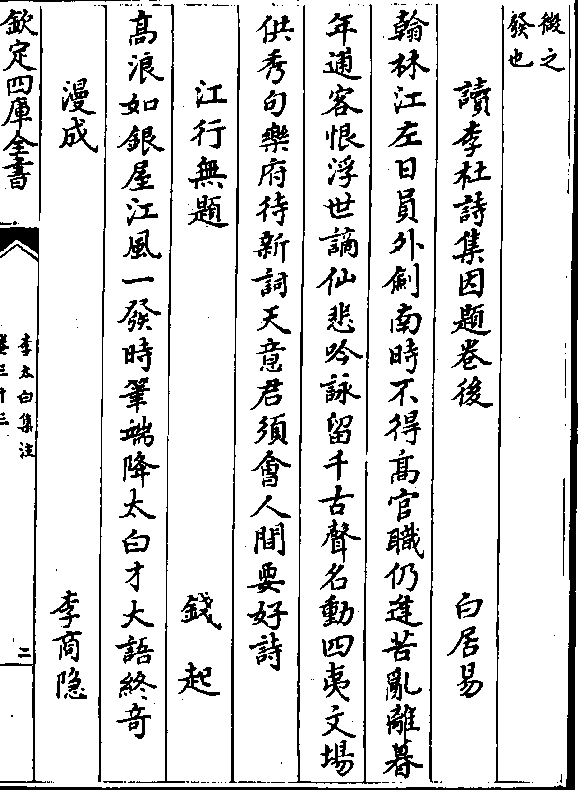 微之
發也
讀李杜詩集因題卷後 白居易
翰林江左日員外劍南時不得髙官職仍逢苦亂離暮
年逋客恨浮世謫仙悲吟詠留千古聲名動四夷文塲
供秀句樂府待新詞天意君須㑹人間要好詩
江行無題 錢起
髙浪如銀屋江風一發時筆端降太白才大語終奇
漫成 李商隐
欽定四庫全書
李太白集注
卷三十三
二